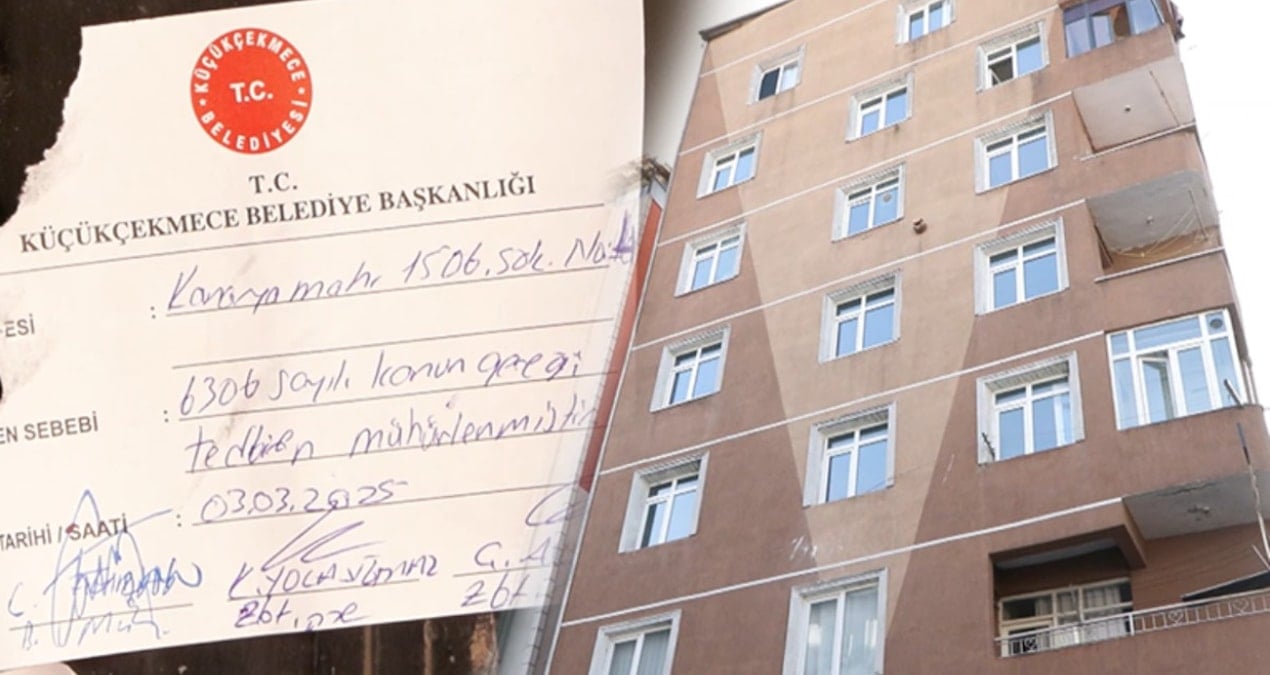 KÜÇÜKÇEKMECE BELEDİYESİ
T.C.
T.C.
KÜÇÜKÇEKMECE BELEDİYE BAŞKANLIĞI
ESİ : Kanarya mah. 1506. sok. No:
EN SEBEBİ : 6306 sayılı kanun gereği
tedbiren mühürlenmiştir
TARİHİ / SAATİ : 03.03.2025
Zbt.
Zbt.